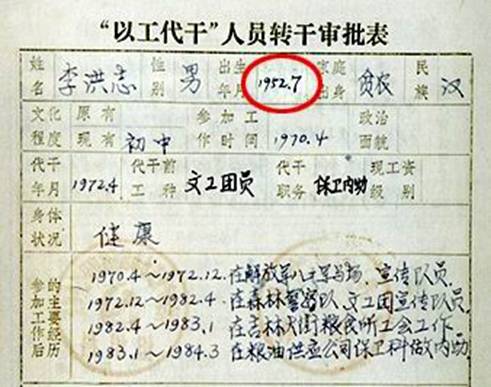 “以工代干”人员转干审批表
姓名 李洪志 性别 男 出生年月 1952.7 家庭出身 贫农 民族 汉
文化程度 原有 现有 初中 参加工作时间 1970.4 政治面貌
代干年月 1972.4 代干前工种 文工团员 代干职务 保卫内勤 现工资级别
身体状况 健康
参加工作后的主要经历
1970.4～1972.12.在解放军八一军马场、宣传队员.
1972.12～1982.4 在森林警察队 文工团宣传队员.
1982.4～1983.1 在吉林大街粮食所工会工作.
1983.1～1984.3 在粮油供应公司保卫科做内勤